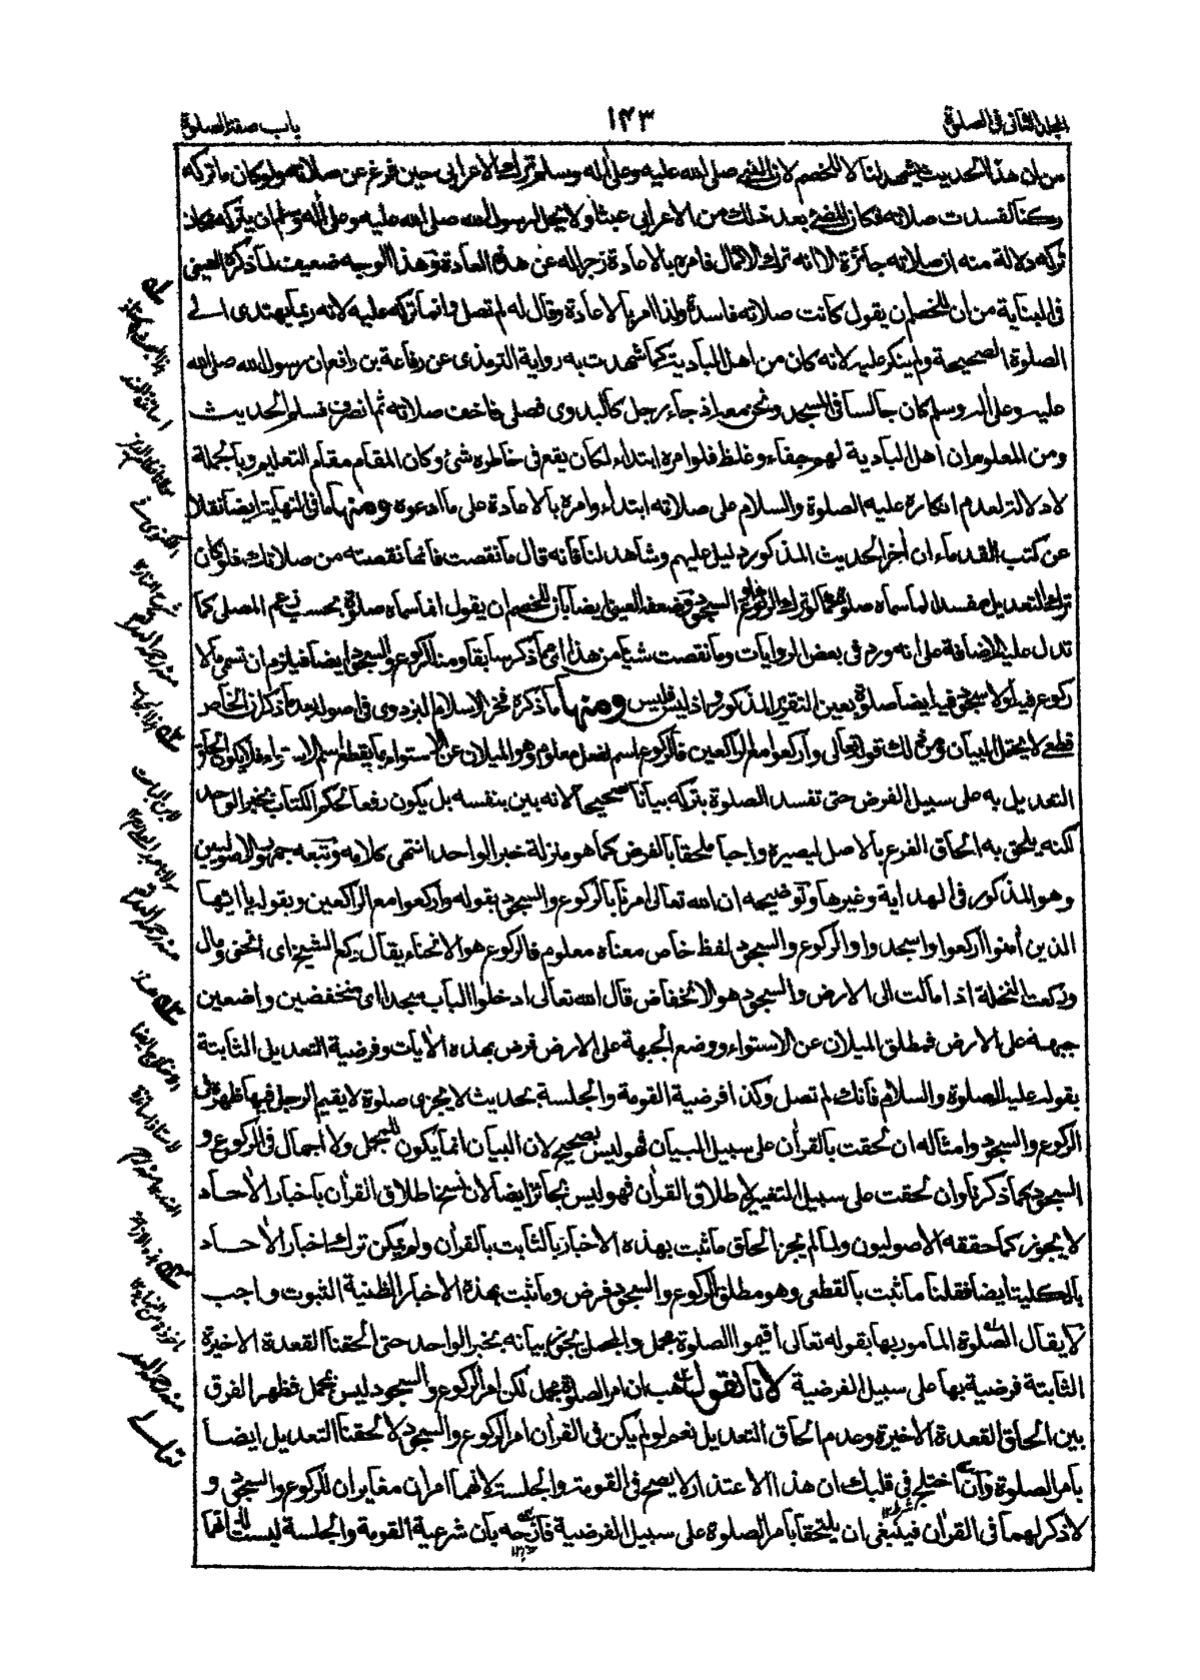 المجلد الثاني في الصلوة
١٤٣
باب صفة الصلوة
من ان هذا الحديث يشهد لنا لا للخصم لان النبي صلى الله عليه وعلى أله وسلم ترك الاعرابي حين فرغ عن صلاته ولو كان ما تركه
ركنا لفسدت صلاته فكان المضي بعد ذلك من الاعرابي عبثا ولا يحل لرسول الله صلى الله عليه وعلى أله وسلم ان يتركه فكان
تركه دلالة منه ان صلاته جائزة الا انه ترك الاكمال فامره بالاعادة زجرا له عن هذه العادة وهذا الوجه ضعيف لما ذكره العيني
في البناية من ان للخصم ان يقول كانت صلاته فاسدة ولذا امره بالاعادة وقال له لم تصل وانما تركه عليه لانه ربما يهتدى الى
الصلوة الصحيحة ولم ينكر عليه لانه كان من اهل البادية كما شهدت به رواية الترمذى عن رفاعة بن رافع ان رسول الله صلى الله
عليه وعلى أله وسلم كان جالسا في المسجد ونحن معه اذ جاء رجل كالبدوى فصلى فاخف صلاته ثم انصرف فسلم الحديث
ومن المعلوم ان اهل البادية لهم جفاء وغلظ فلو امره ابتداء لكان يقع في خاطره شئ وكان المقام مقام التعليم وبالجملة
لا دلالة لعدم انكاره عليه الصلوة والسلام على صلاته ابتداء وامره بالاعادة على ما ادعوه ومنها ما في النهاية ايضا نقلا
عن كتب القدماء ان أخر الحديث المذكور دليل عليهم وشاهد لنا فانه قال ما نقصت فانما نقصته من صلاتك فلو كان
ترك التعديل مفسدا لما سماه صلوة كما لو ترك الركوع او السجود وضعفه العيني ايضا بان للخصم ان يقول انما سماه صلوة بحسب زعم المصلى كما
تدل عليه الاضافة على انه ورد في بعض الروايات وما نقصت شيئا من هذا اى مما ذكر سابقا ومنه الركوع والسجود ايضا فيلزم ان تسمى ما لا
ركوع فيه او لا سجود فيه ايضا صلوة بعين التقرير المذكور واذ ليس فليس ومنها ما ذكره فخر الاسلام البزدوى في اصوله بعد ما ذكر ان الخاص
قطعي لا يحتمل البيان ومن ذلك قوله تعالى واركعوا مع الراكعين فالركوع اسم لفعل معلوم وهو الميلان عن الاستواء بما يقطع اسم الاستواء فلا يكون الحاق
التعديل به على سبيل الفرض حتى تفسد الصلوة بتركه بيانا صحيحا لانه بين بنفسه بل يكون رفعا لحكم الكتاب بخبر الواحد
لكنه يلحق به الحاق الفرع بالاصل ليصيره واجبا ملحقا بالفرض كما هو منزلة خبر الواحد انتهى كلامه وتبعه جمهور الاصوليين
وهو المذكور في الهداية وغيرها وتوضيحه ان الله تعالى امرنا بالركوع والسجود بقوله واركعوا مع الراكعين وبقوله يا ايها
الذين أمنوا اركعوا واسجدوا والركوع والسجود لفظ خاص معناه معلوم فالركوع هو الانحناء يقال ركع الشيخ اى انحنى ومال
وركعت النخلة اذا مالت الى الارض والسجود هو الانخفاض قال الله تعالى ادخلوا الباب سجدا اى منخفضين واضعين
جبهته على الارض فمطلق الميلان عن الاستواء ووضع الجبهة على الارض فرض بهذه الأيات وفرضية التعديل الثابتة
بقوله عليه الصلوة والسلام فانك لم تصل وكذا فرضية القومة والجلسة بحديث لا يجزى صلوة لا يقيم الرجل فيها ظهره في
الركوع والسجود وامثاله ان لحقت بالقرأن على سبيل البيان فهو ليس بصحيح لان البيان انما يكون للمجمل ولا اجمال في الركوع و
السجود كما ذكرنا وان لحقت على سبيل التغيير لاطلاق القرأن فهو ليس بجائز ايضا لان نسخ اطلاق القرأن باخبار الأحاد
لا يجوز كما حققه الاصوليون ولما لم يجز الحاق ما ثبت بهذه الاخبار بالثابت بالقرأن ولم يمكن ترك اخبار الأحاد
بالكلية ايضا فقلنا ما ثبت بالقطعى وهو مطلق الركوع والسجود فرض وما ثبت بهذه الاخبار الظنية الثبوت واجب
لا يقال الصلوة المامور بها بقوله تعالى اقيموا الصلوة مجمل والمجمل يجوز بيانه بخبر الواحد حتى الحقنا القعدة الاخيرة
الثابتة فرضية بها على سبيل الفرضية لانا نقول هب ان امر الصلوة مجمل لكن امر الركوع والسجود ليس بمجمل فظهر الفرق
بين الحاق القعدة الاخيرة وعدم الحاق التعديل نعم لو لم يكن في القرأن امر الركوع والسجود لالحقنا التعديل ايضا
بامر الصلوة وان اختلج في قلبك ان هذا الاعتذار لا يصح في القومة والجلسة لانهما امران مغايران للركوع والسجود و
لا ذكر لهما في القرأن فينبغى ان يلتحقا بامر الصلوة على سبيل الفرضية فازحه بان شرعية القومة والجلسة ليست لذاتهما